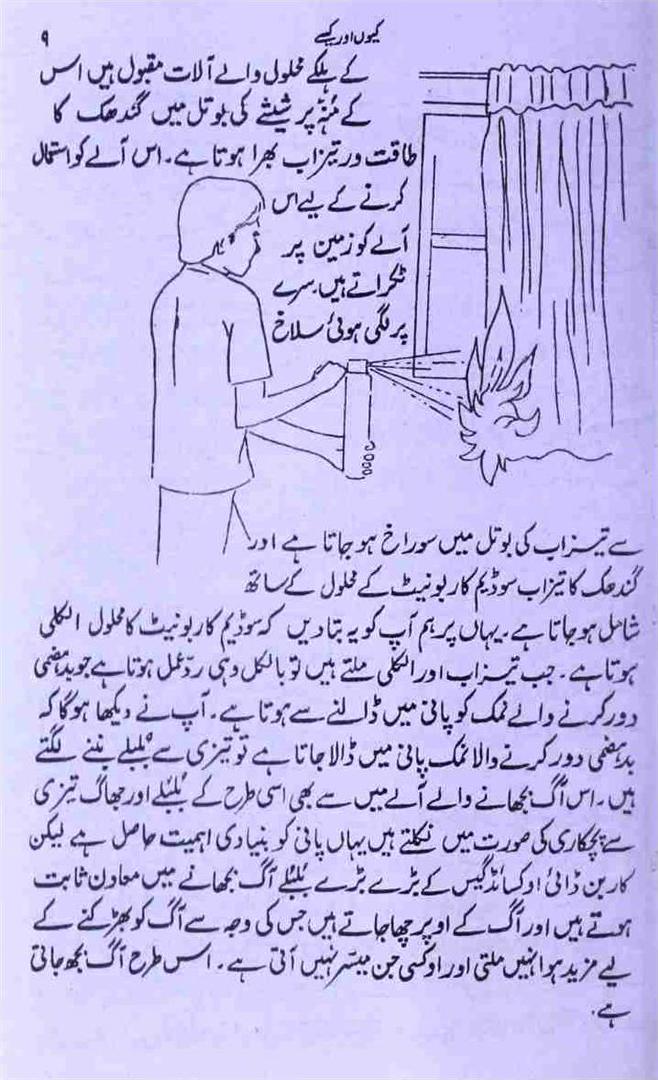 کیوں اور کیسے
۹
کے ہلکے محلول والے آلات مقبول ہیں اس
کے مُنہ پر شیشے کی بوتل میں گندھک کا
طاقت ور تیزاب بھرا ہوتا ہے۔ اس آلے کو استعمال
کرنے کے لیے اس
آلے کو زمین پر
ٹکراتے ہیں۔ سرے
پر لگی ہوئی سلاخ
سے تیزاب کی بوتل میں سوراخ ہو جاتا ہے اور
گندھک کا تیزاب سوڈیم کاربونیٹ کے محلول کے ساتھ
شامل ہو جاتا ہے۔ یہاں پر ہم آپ کو یہ بتا دیں کہ سوڈیم کاربونیٹ کا محلول الکلی
ہوتا ہے۔ جب تیزاب اور الکلی ملتے ہیں تو بالکل وہی ردِّعمل ہوتا ہے جو بدہضمی
دور کرنے والے نمک کو پانی میں ڈالنے سے ہوتا ہے۔ آپ نے دیکھا ہوگا کہ
بدہضمی دور کرنے والا نمک پانی میں ڈالا جاتا ہے تو تیزی سے بُلبلے بننے لگتے
ہیں۔ اس آگ بجھانے والے آلے میں سے بھی اسی طرح کے بُلبُلے اور جھاگ تیزی
سے پچکاری کی صورت میں نکلتے ہیں یہاں پانی کو بنیادی اہمیت حاصل ہے لیکن
کاربن ڈائی اوکسائڈ گیس کے بڑے بڑے بُلبُلے آگ بجھانے میں معاون ثابت
ہوتے ہیں اور آگ کے اوپر چھا جاتے ہیں جس کی وجہ سے آگ کو بھڑکنے کے
لیے مزید ہوا نہیں ملتی اور اوکسی جن میسّر نہیں آتی ہے۔ اس طرح آگ بجھ جاتی
ہے۔